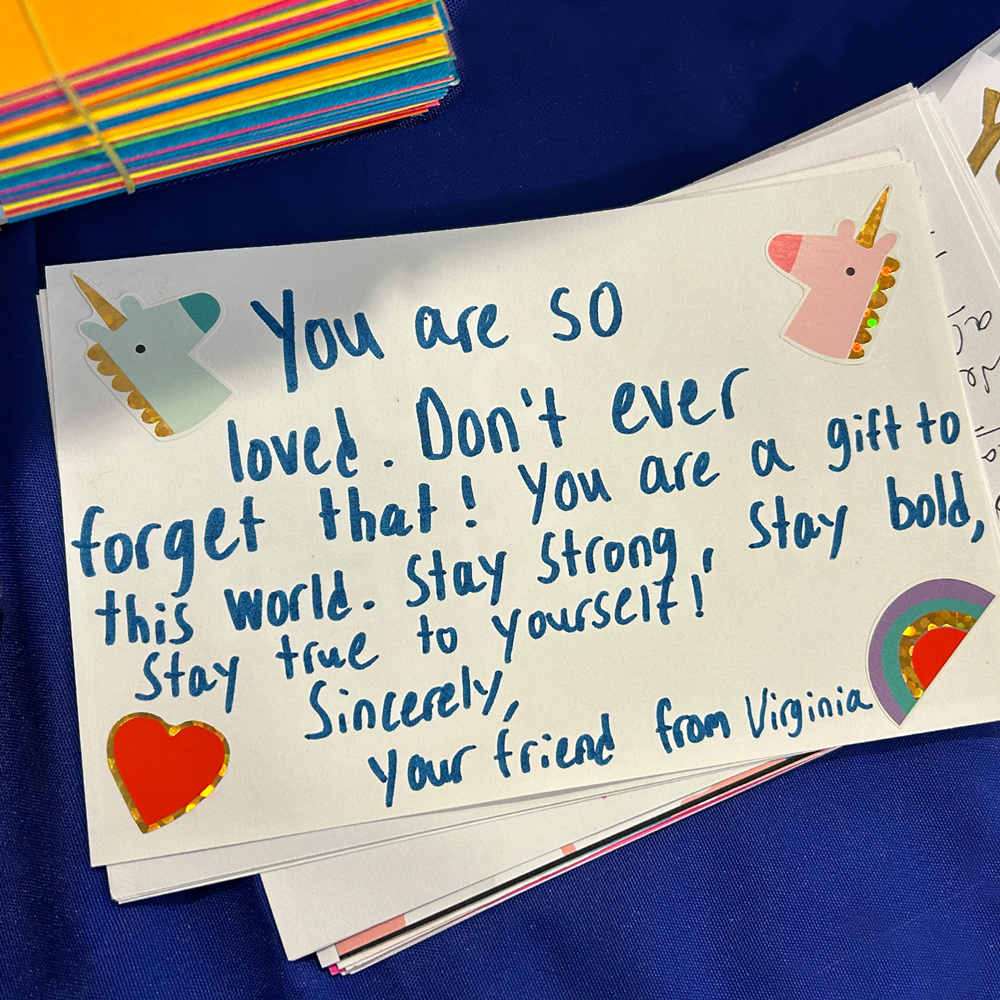 You are so
loved. Don't ever
forget that! You are a gift to
this world. Stay strong, stay bold,
stay true to yourself!
Sincerely,
Your friend from Virginia